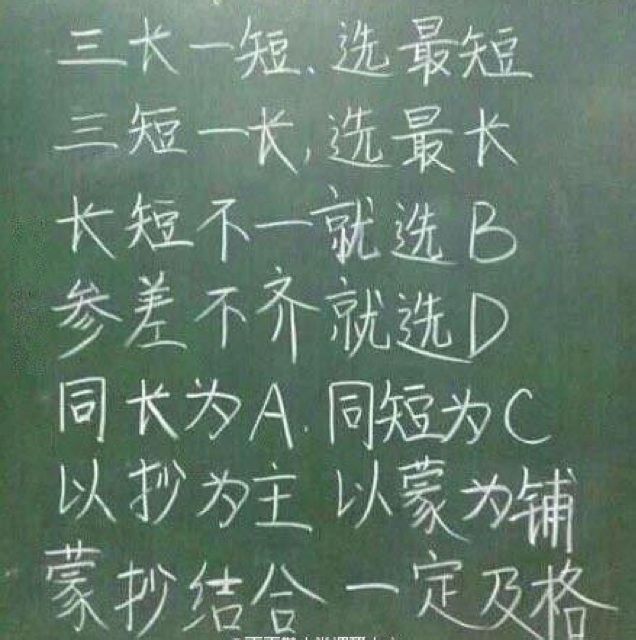 三长一短、选最短
三短一长,选最长
长短不一就选B
参差不齐就选D
同长为A.同短为C
以抄为主 以蒙为铺
蒙抄结合 一定及格